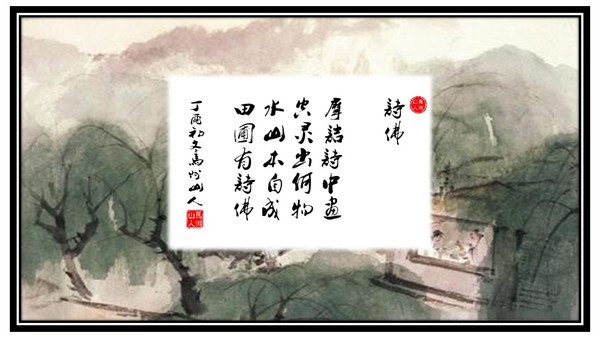 詩佛
摩詰詩中畫
空灵出何物
水山本自成
田園有詩佛
丁酉初冬馬州山人